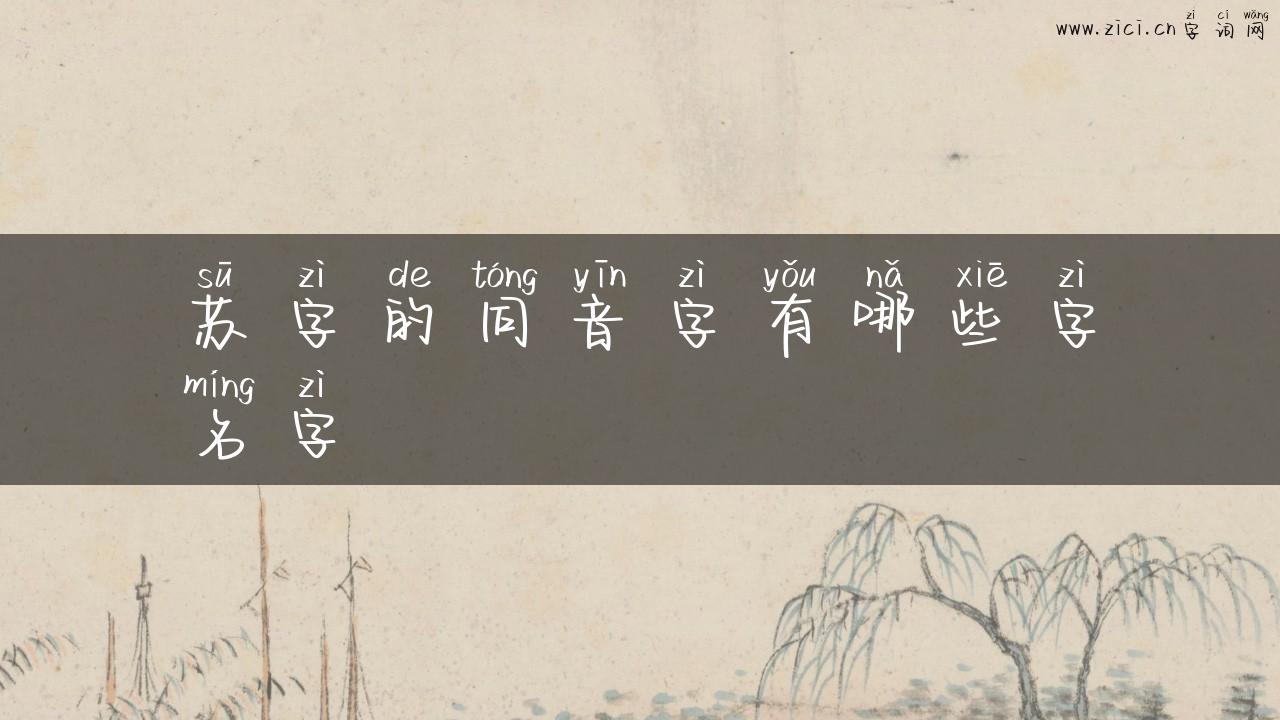 zì cí wǎng
www.zici.cn字词网
sū zì de tóng yīn zì yǒu nǎ xiē zì
苏字的同音字有哪些字
míng zì
名字